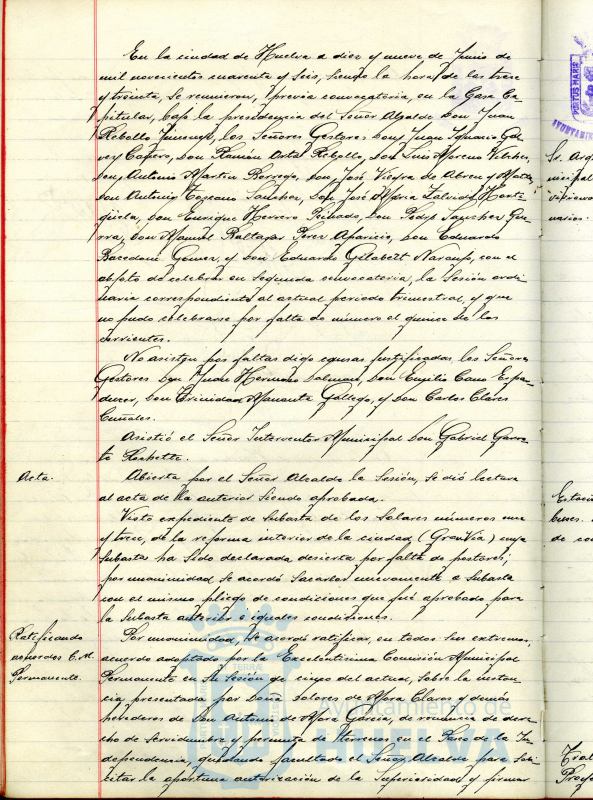 En la ciudad de Huelva a diez y nueve de Junio de
mil novecientos cuarenta y seis, siendo la hora de las trece
y treinta, se reunieron, previa convocatoria, en la Casa Ca-
pitular, bajo la presidencia del Señor Alcalde Don Juan
Rebollo Jimenez, los Señores Gestores Don Juan Ignacio Gal-
vez Cañero, Don Ramón Artal Rebollo, Don Luis Moreno Vilches,
Don Antonio Martin Borrego, don José Vieyra de Abreu y Motta,
don Antonio Toscano Sanchez, don José Maria Zalvide
don Enrique Herrero don Pedro Sanchez Gue-
rra, don Manuel Baltazar Perez Aparicio, don Eduardo
Gomez, y don Eduardo Gilabert Naranjo, con el
objeto de celebrar en segunda convocatoria, la Sesión ordi-
naria correspondiente al actual periodo trimestral, y que
no pudo celebrarse por falta de número el quince de los
corrientes.
No asisten por faltas digo causas justificadas los Señores
Gestores Don Juan Hermoso don Emilio Cano
don Trinidad Gallego, y don Carlos Clares
Asistió el Señor Interventor Municipal Don Gabriel Garro-
te
Acta.
Abierta por el Señor Alcalde la Sesión, se dió lectura
al acta de la anterior siendo aprobada.
Visto expediente de subasta de los Solares números once
y trece, de la reforma interior de la ciudad (Gran Vía) cuya
subasta ha sido declarada desierta por falta de postores;
por unanimidad, se acordó sacarlos nuevamente a subasta
con el mismo pliego de condiciones que fué aprobado para
la subasta anterior e iguales condiciones.
Ratificando
acuerdos C. M.
Permanente.
Por unanimidad, se acordó ratificar, en todos sus extremos,
acuerdo adoptado por la Excelentísima Comisión Municipal
Permanente en su Sesión de cinco del actual, sobre la instan-
cia presentada por Doña Dolores de Mora Claros y demás
herederos de Don Antonio de Mora Garcia, de renuncia de dere-
cho de servidumbre y permuta de terrenos en el Paseo de la In-
dependencia, quedando facultado el Señor Alcalde para soli-
citar la oportuna autorización de la Superioridad y firmar
Ayuntamiento de
HUELVA
PORTUS MARIS
Sr. Arq
nicipal